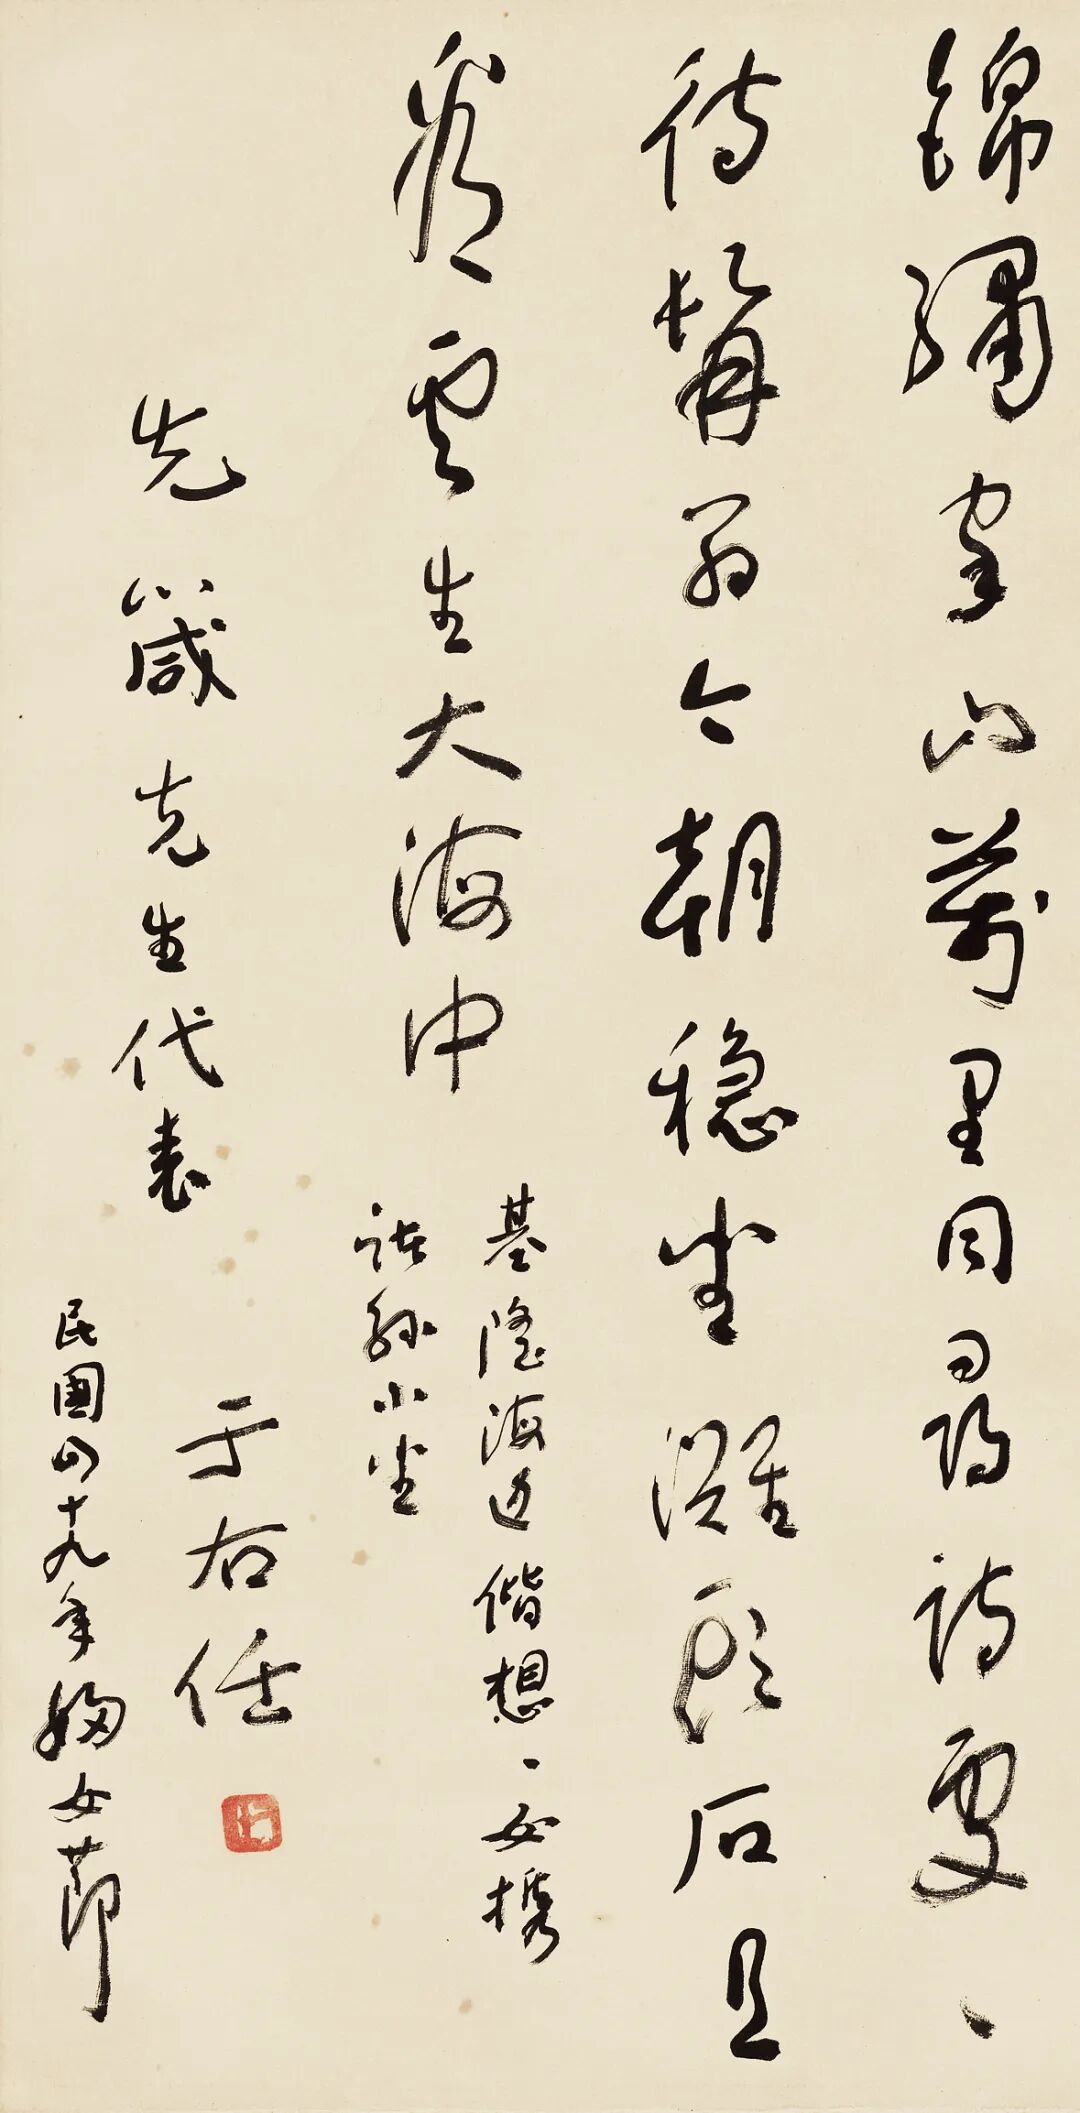 錦繡家山萬里同尋詩處、
待髯翁今朝穩坐灘頭石且
看雲生大海中
基隆海邊偕想、女携
諸孫小坐
先箴先生代表
于右任
民國四十九年婦女節